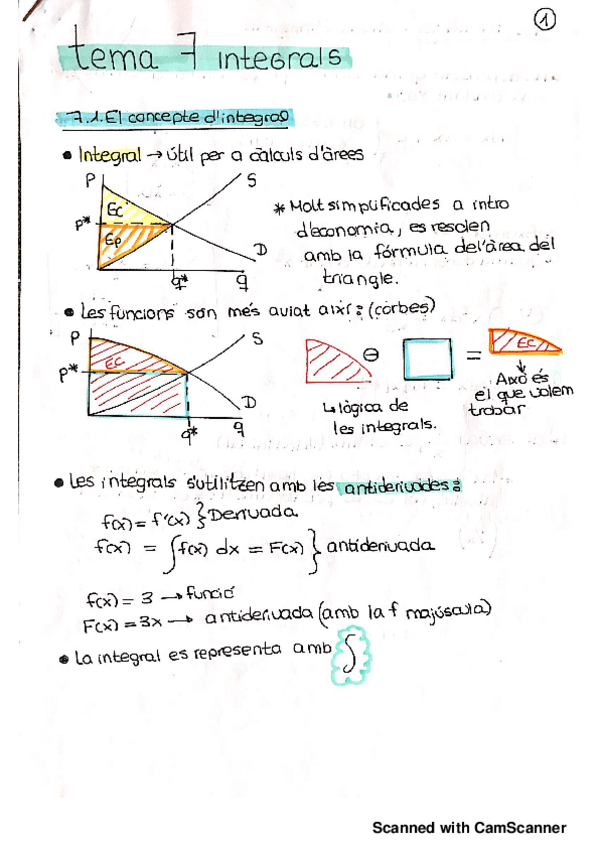 1
tema 7 integrals
7.1. El concepte d'integral
• Integral → útil per a càlculs d'àrees
P S
EC
P*
EP
D
q* q
* Molt simplificades a intro
d'economia, es resolen
amb la fórmula de l'àrea del
triangle.
• Les funcions són més aviat així: (corbes)
P S
EC
P*
D
q* q
⊖ = EC
↳ lògica de
les integrals.
Això és
el que volem
trobar
• Les integrals s'utilitzen amb les antiderivades:
f(x) = f'(x) } Derivada
f(x) = ∫f(x) dx = F(x) } antiderivada
f(x) = 3 → funció
F(x) = 3x → antiderivada (amb la f majúscula)
• La integral es representa amb ∫
Scanned with CamScanner